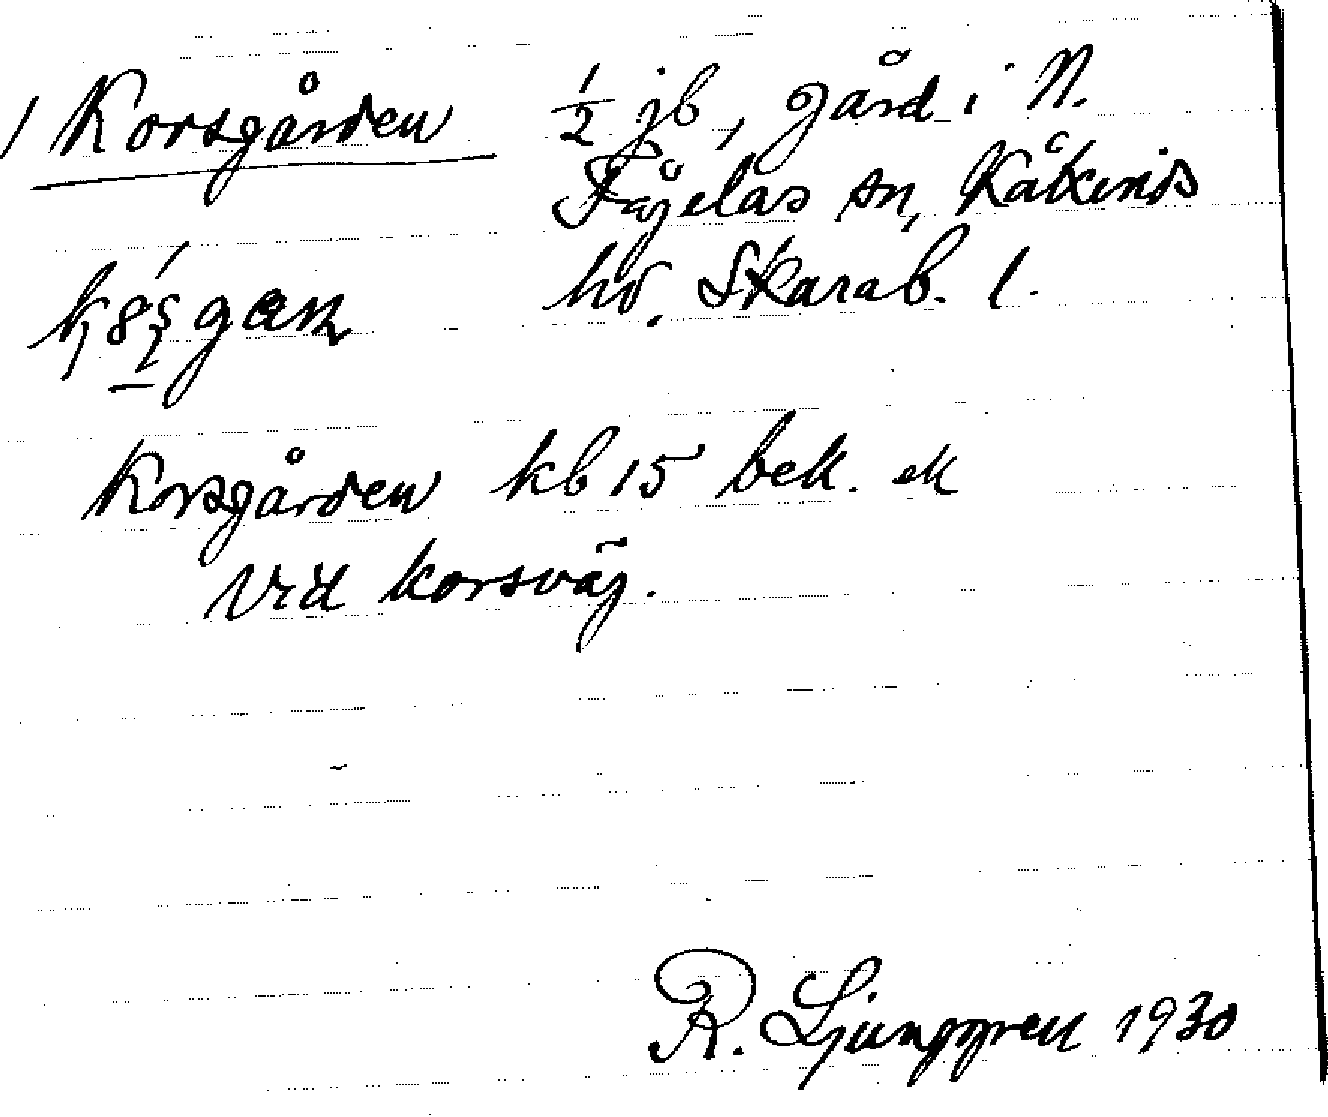 Korsgården ½ jb, gård i N.
Fågelås sn, Kåkinds
hd. Skarab. l.
Korsgården kb 15 bek. ek
vid korsväg.
R. Ljunggren 1930